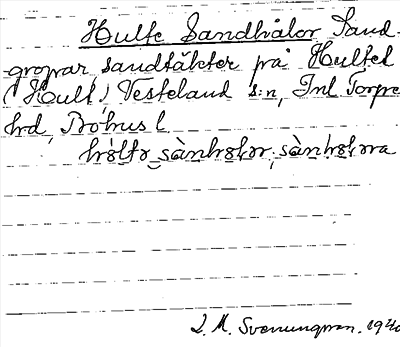 Hulte Sandhålor Sand-
gropar sandtäkter på Hultet
(Hult) Västerland s:n, Inl Torpe
hrd, Bohus l.
sànholor, sànholora
J. M. Svenungsson. 1940